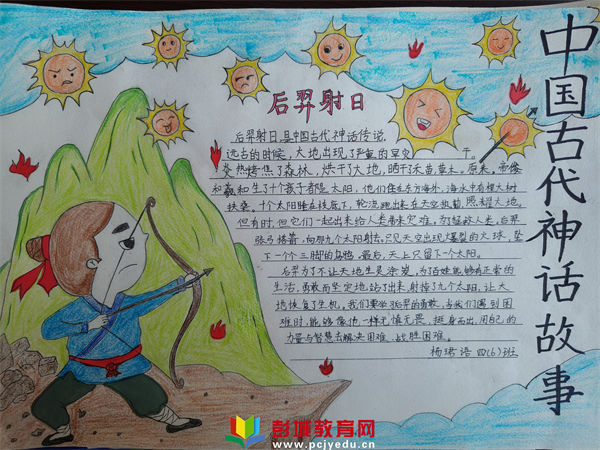 中国古代神话故事
后羿射日
后羿射日,是中国古代神话传说.
远古的时候,大地出现了严重的旱灾 干。
炎热烤焦了森林,烘干了大地,晒干了禾苗,草木,原来,帝俊
和羲和生了十个孩子都是太阳,他们住在东方海外,海水中有棵大树
扶桑。十个太阳睡在枝底下,轮流跑出来在天空执勤,照耀大地。
但有时,但它们一起出来给人类带来灾难,为了拯救人类,后羿
张弓搭箭,向那九个太阳射去,只见天空出现大爆裂的火球,坠
下一个个三脚的乌鸦,最后,天上只留下一个太阳。
后羿为了不让天地生灵涂炭,为百姓能够有正常的
生活,勇敢而坚定地站了出来,射掉了九个太阳,让大
地恢复了生机。我们要学习后羿的勇敢,当我们遇到困
难时,能够像他一样无惧无畏,挺身而出,用自己的
力量与智慧去解决困难,战胜困难。
杨珺语 四(6)班
彭城教育网
www.pcjyedu.cn